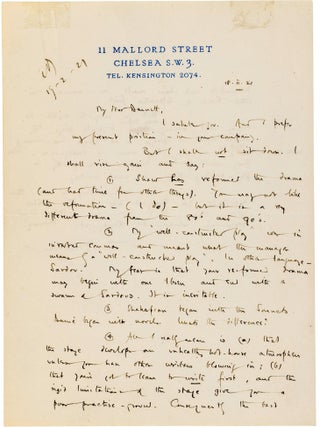 11 MALLORD STREET
CHELSEA S.W.3.
TEL. KENSINGTON 2074.
My dear Bennett,
I salute you. And I prefer
my present position – in your company.
But I shall not sit down. I
shall rise again and say:
① Shaw has reformed the drama
(and had time for other things). You may not like
the reformation – (I do) – but it is a very
different drama from the 80s and 90s.
② My "well-constructed play" was in
inverted commas and meant what the managers
mean by a "well-constructed play". In other language –
Sardou. My fear is that your re-formed drama
may begin with one Ibsen and end with a
dozen Sardous. It is inevitable.
③ Shakespeare began with the Sonnets
began with novels. What's the difference?
④ All I really mean is (a) that
the stage develops an unhealthy hot-house atmosphere
unless you have other writers blowing in; (b)
that you've got to learn to write first, and the
rigid limitations of the stage give you a
poor practice-ground. Consequently the best